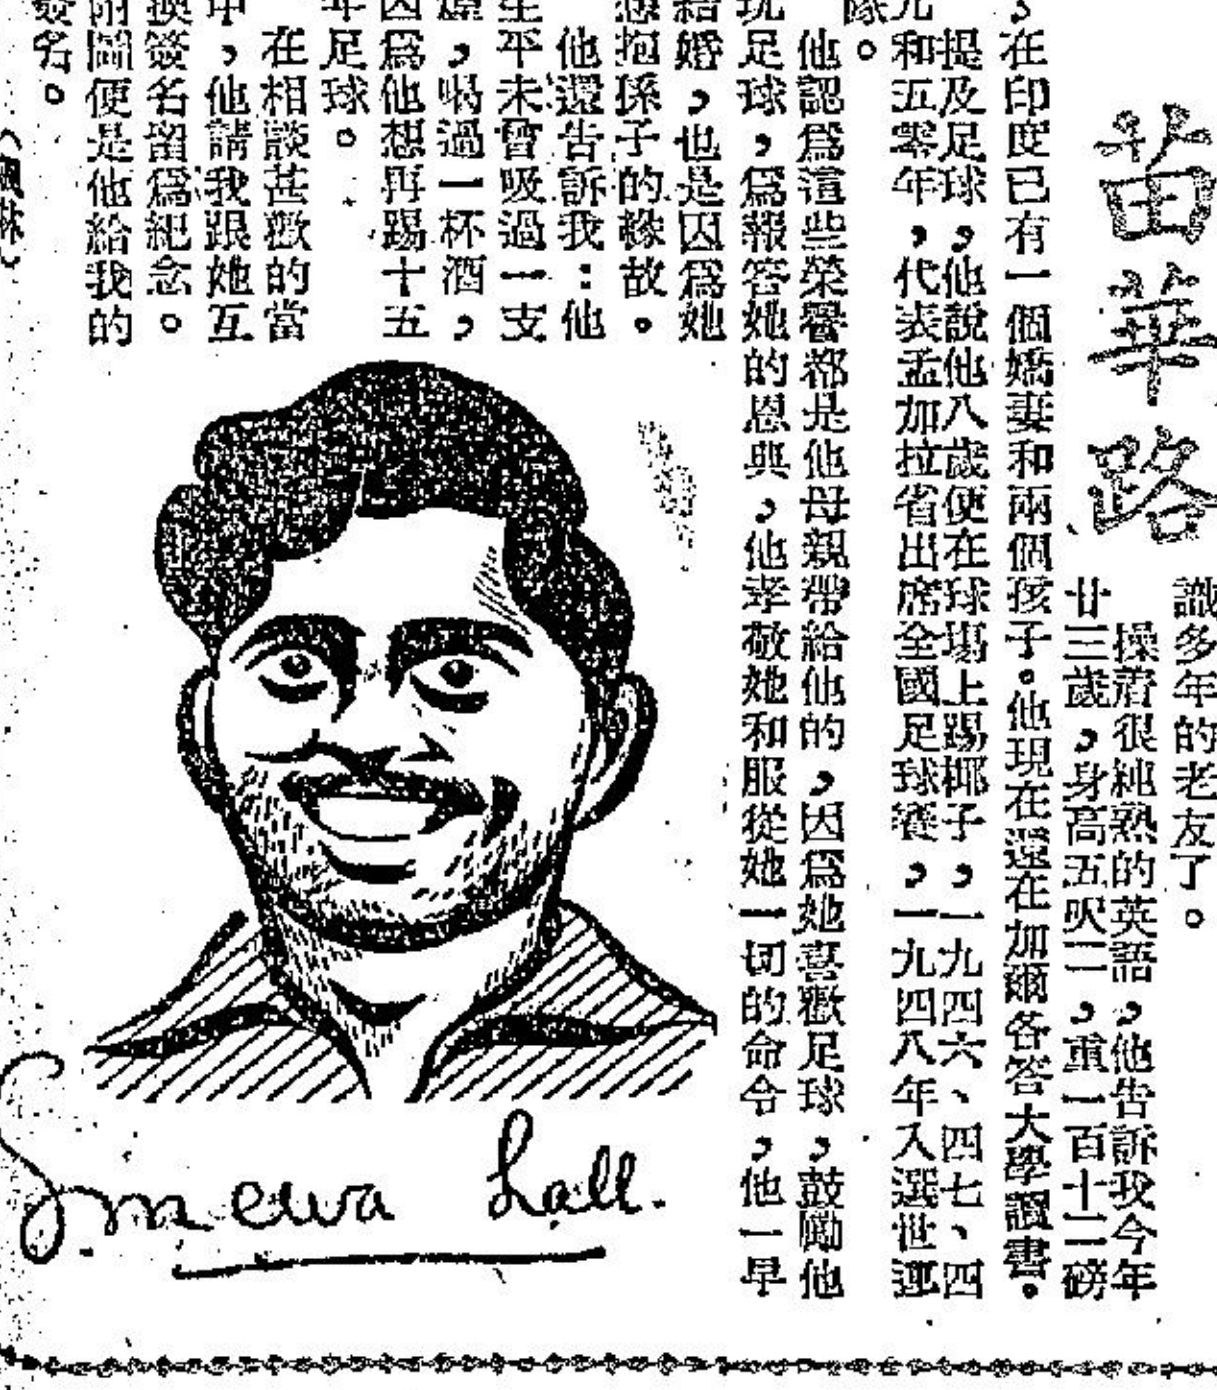 苗華路
識多年的老友了。
操着很純熟的英語，他告訴我今年
廿三歲，身高五呎二，重一百十二磅
，在印度已有一個嬌妻和兩個孩子。他現在還在加爾各答大學讀書。
提及足球，他說他八歲便在球塲上踢椰子，一九四六、四七、四
九和五零年，代表孟加拉省出席全國足球賽，一九四八年入選世運
隊。
他認爲這些榮譽都是他母親帶給他的，因爲她喜歡足球，鼓勵他
玩足球，爲報答她的恩典，他孝敬她和服從她一切的命令，他一早
結婚，也是因爲她
想抱孫子的緣故。
他還告訴我：他
生平未曾吸過一支
煙，喝過一杯酒，
因爲他想再踢十五
年足球。
在相談甚歡的當
中，他請我跟她互
換簽名留爲紀念。
附圖便是他給我的
簽名。
S. mewa Lall.